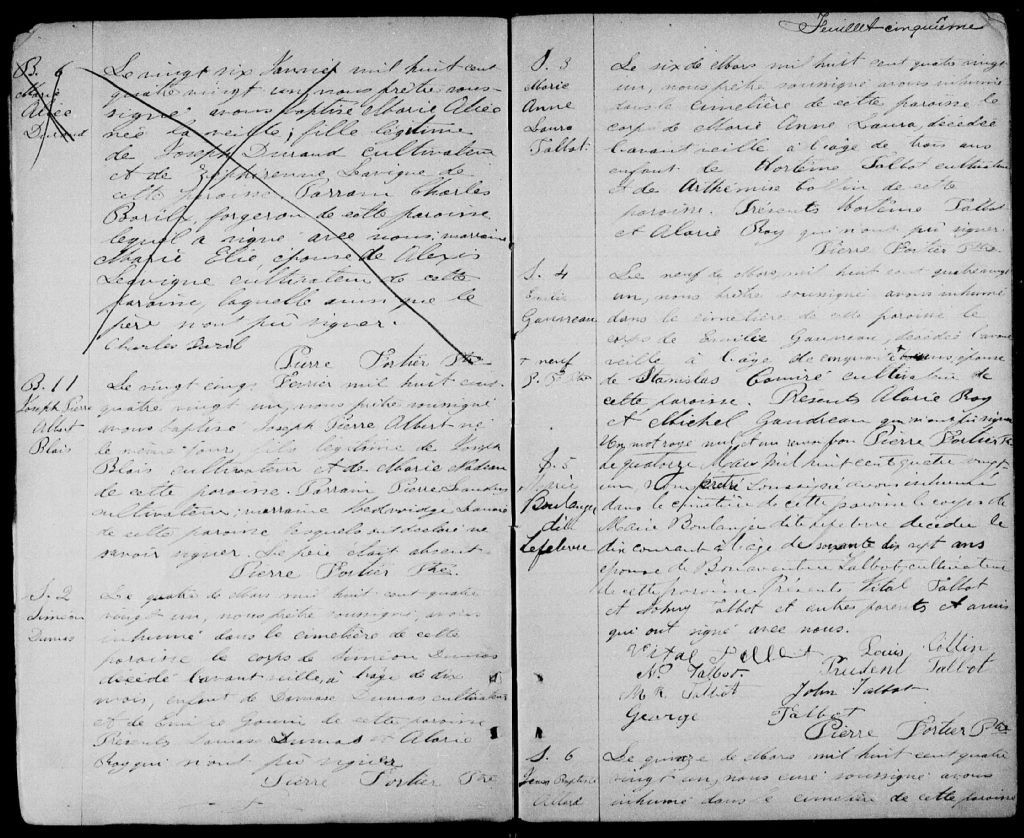 B. 6
Marie
Alice
Durand
Le vingt six Janvier mil huit cent
quatre vingt un, nous prêtre sous-
signé avons baptisé Marie Alice
née la veille, fille légitime
de Joseph Durand cultivateur
et de Zéphirenne Lavigne de
cette paroisse. Parrain Charles
Baril, forgeron de cette paroisse
lequel a signé avec nous; marraine
Marie Elie épouse de Alexis
Lavigne cultivateur de cette
paroisse, laquelle ainsi que le
père n'ont pu signer.
Charles Baril
Pierre Fortier Ptre
B. 11
Joseph Pierre
Albert
Blais
Le vingt cinq Février mil huit cent
quatre vingt un, nous prêtre soussigné
avons baptisé Joseph Pierre Albert né
le même jour, fils légitime de Joseph
Blais cultivateur et de Marie Nadeau
de cette paroisse. Parrain Pierre Landry
cultivateur; marraine
de cette paroisse lesquels ont déclaré ne
savoir signer. Le père était absent.
Pierre Fortier Ptre.
S. 2
Siméon
Dumas
Le quatre de Mars mil huit cent quatre
vingt un, nous prêtre soussigné, avons
inhumé dans le cimetière de cette
paroisse le corps de Siméon Dumas
décédé l'avant veille, à l'age de dix
mois, enfant de Damase Dumas cultivateur
et de Gouin de cette paroisse
Présents Damase Dumas et Alarie
Roy qui n'ont pu signer
Pierre Fortier Ptre
Feuillet cinquième
S. 3
Marie
Anne
Laura
Talbot
Le six de Mars mil huit cent quatre vingt
un, nous prêtre soussigné avons inhumé
dans le cimetière de cette paroisse le
corps de Marie Anne Laura, décédée
l'avant veille à l'age de trois ans
enfant de Hortème Talbot cultivateur
et de Arthémise Collin de cette
paroisse. Présents Hortème Talbot
et Alarie Roy qui n'ont pu signer.
Pierre Fortier Ptre.
S. 4
Emilie
Gaudreau
+ neuf
P. F. Ptre
Le neuf de Mars mil huit cent quatre vingt
un, nous prêtre soussigné avons inhumé
dans le cimetière de cette paroisse le
corps de Emilie Gaudreau, décédée l'avant
veille à l'age de cinquante + ans, épouse
de Stanislas Comiré cultivateur de
cette paroisse. Présents Alarie Roy
et Michel Gaudreau qui n'ont pu signer
Un mot rayé nul et un renvoi bon Pierre Fortier Ptre
S. 5
Marie
Boulanger
dite
Lefebvre
Le quatorze Mars mil huit cent quatre vingt
un Nous prêtre Soussigné avons inhumé
dans le cimetière de cette paroisse le corps de
Marie Boulanger dit Lefebvre décédée le
dix courant à l'age de soixante dix sept ans
épouse de Bonaventure Talbot, cultivateur
de cette paroisse. Présents Vital Talbot
et Johny Talbot et autres parents et amis
qui ont signé avec nous.
Vital Talbot Louis Collin
N. Talbot. Prudent Talbot
M R Talbot John Talbot
George Talbot
Pierre Fortier Ptre
S. 6
Jean Baptiste
Allard
Le quinze de Mars mil huit cent quatre
vingt un, nous curé soussigné avons
inhumé dans le cimetière de cette paroisse